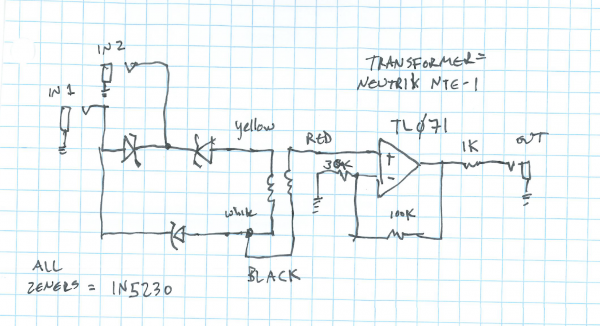 IN 2
TRANSFORMER=
NEUTRIK NTE-1
IN 1
TLØ71
yellow
RED
1K
OUT
30K
+
-
100K
white
BLACK
ALL
ZENERS = 1N5230